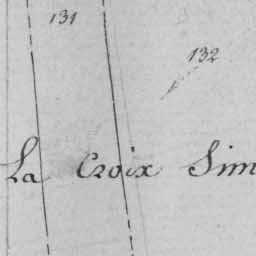 131
132
La Croix Sim